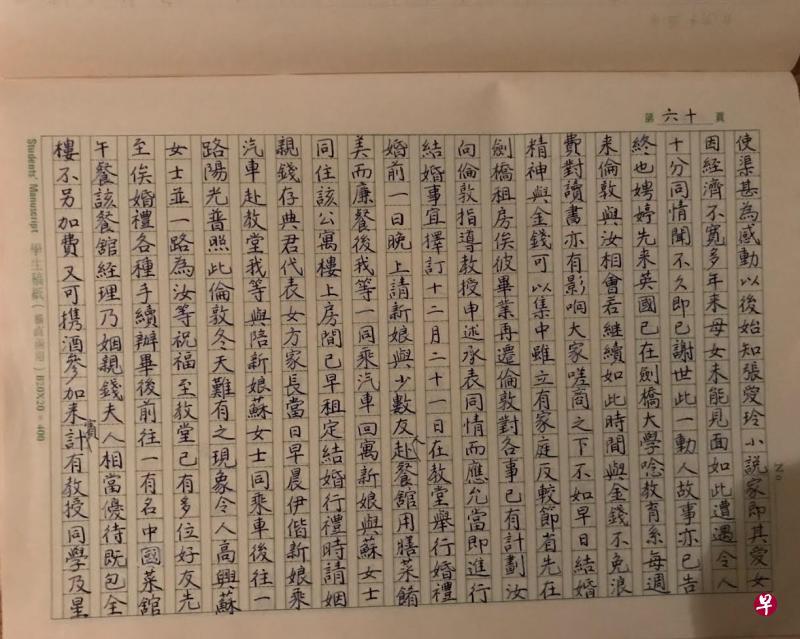 第六十頁
No
使渠甚為感動以後始知張愛玲小説家即其愛女
因經濟不寬多年來母女未能見面如此遭遇令人
十分同情聞不久即已謝世此一動人故事亦已告
終也娉婷先來英國已在劍橋大學唸教育系每週
來倫敦與汝相會若繼續如此時間與金錢不免浪
費對讀書亦有影响大家嗟商之下不如早日結婚
精神與金錢可以集中雖立有家庭反較節省先在
劍橋租房俟彼畢業再遷倫敦對各事已有計劃汝
向倫敦指導教授申述承表同情而應允當即進行
結婚事宜擇訂十二月二十一日在教堂舉行婚禮
婚前一日晚上請新娘與少數友人赴餐舘用膳菜餚
美而廉餐後我等一同乘汽車回寓新娘與蘇女士
同住該公寓樓上房間已早租定結婚行禮時請姻
親錢存典君代表女方家長當日早晨伊偕新娘乘
汽車赴教堂我等與陪新娘蘇女士同乘車後往一
路陽光普照此倫敦冬天難有之現象令人高興蘇
女士並一路為汝等祝福至教堂已有多位好友先
至俟婚禮各種手續辦畢後前往一有名中國菜舘
午餐該餐舘經理乃姻親錢夫人相當優待既包全
樓不另加費又可携酒參加來賓計有教授同學及星
Students' Manuscript 學生稿紙（橫直両用）B20X20＝400
早